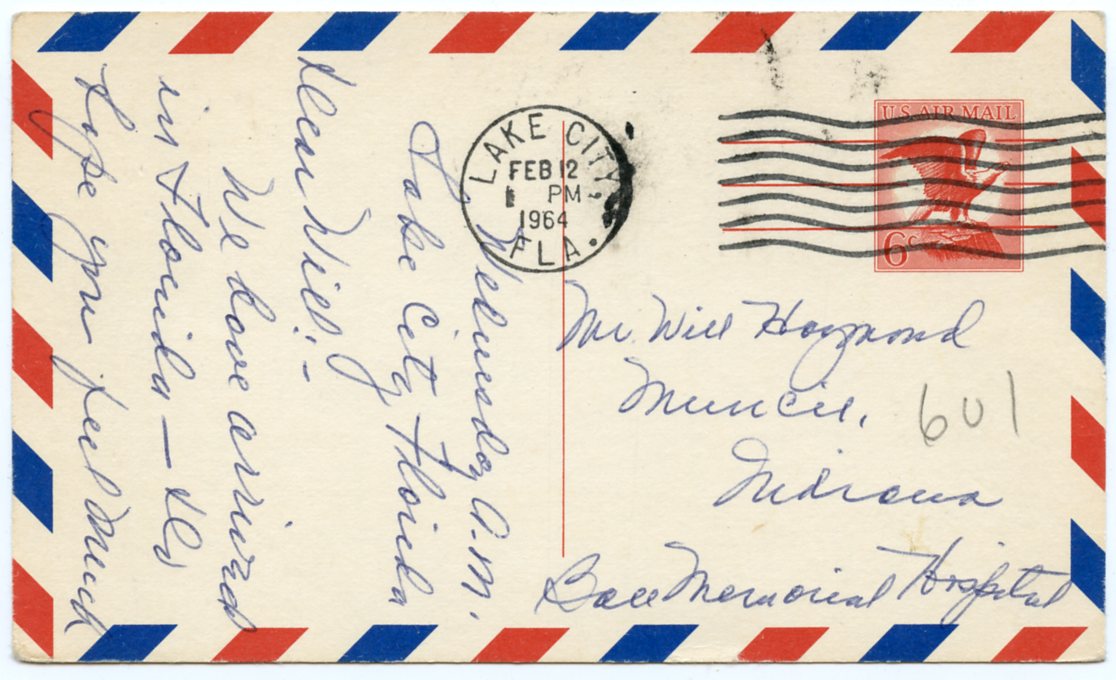 Wednesday A.M.
Lake City Florida
Dear Will:-
We have arrived
in Florida - &
Hope you feel much
LAKE CITY,
FEB 12
PM
1964
FLA.
U.S. AIR MAIL
6c
Mr. Will Haymond
Muncie,
601
Indiana
Ball Memorial Hospital